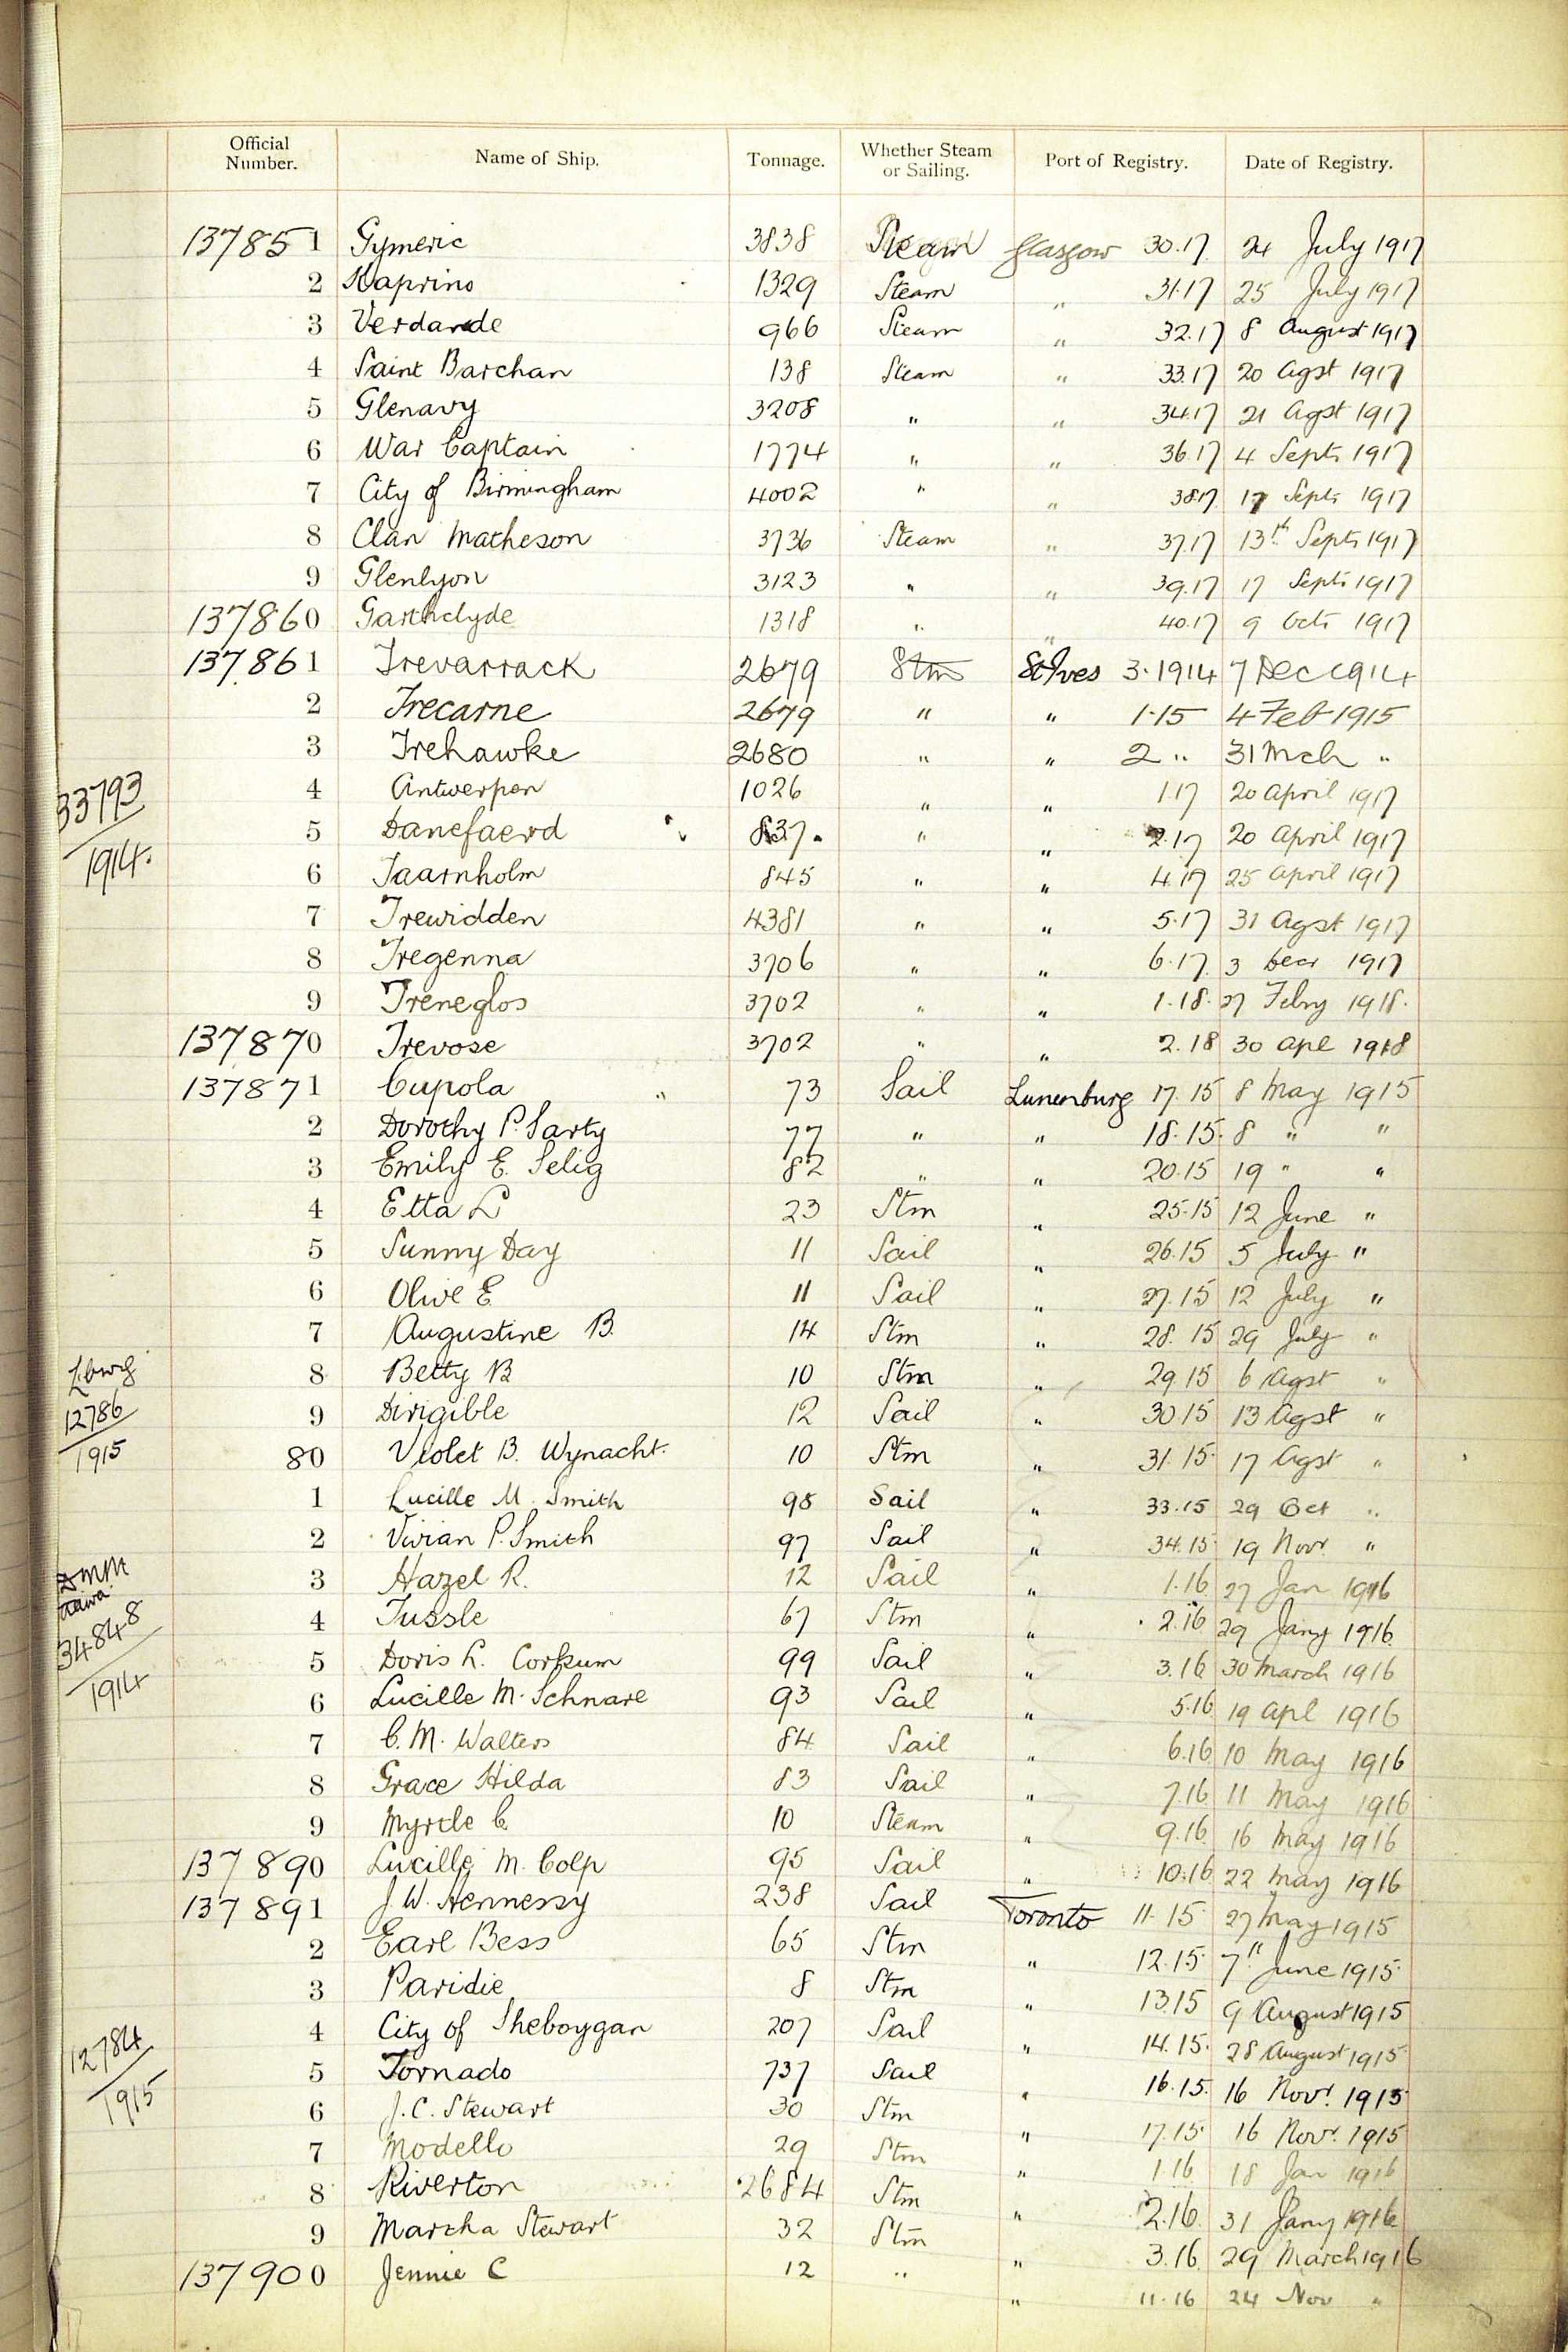 Official Number. Name of Ship. Tonnage. Whether Steam or Sailing. Port of Registry. Date of Registry.
137851 Gymeric 3838 Steam Glasgow 30.17 24 July 1917
2 Kaprino 1329 Steam " 31.17 25 July 1917
3 Verdande 966 Steam " 32.17 8 August 1917
4 Saint Barchan 138 Steam " 33.17 20 Agst 1917
5 Glenavy 3208 " " 34.17 21 Agst 1917
6 War Captain 1774 " " 36.17 4 Sept. 1917
7 City of Birmingham 4002 " " 38.17 17 Sept. 1917
8 Clan Matheson 3736 Steam " 37.17 13th Sept. 1917
9 Glenlyon 3123 " " 39.17 17 Sept. 1917
137860 Garthclyde 1318 " " 40.17 9 Oct. 1917
137861 Trevarrack 2679 Stm St Ives 3.1914 7 Dec 1914
2 Trecarne 2679 " " 1.15 4 Feb 1915
3 Trehawke 2680 " " 2 " 31 Mch "
33793 4 Antwerpen 1026 " " 1.17 20 April 1917
1914. 5 Danefaerd 837. " " 2.17 20 April 1917
6 Taarnholm 845 " " 4.17 25 April 1917
7 Trewidden 4381 " " 5.17 31 Agst 1917
8 Tregenna 3706 " " 6.17. 3 Decr 1917
9 Treneglos 3702 " " 1.18. 27 Febry 1918.
137870 Trevose 3702 " " 2.18 30 Apl 1918
137871 Cupola " 73 Sail Lunenburg 17.15 8 May 1915
2 Dorothy P. Sarty 77 " " 18.15. 8 " "
3 Emily E. Selig 82 " " 20.15 19 " "
4 Etta L 23 Stm " 25.15 12 June "
5 Sunny Day 11 Sail " 26.15 5 July "
6 Olive E. 11 Sail " 27.15 12 July "
7 Augustine B. 14 Stm " 28.15 29 July "
8 Betty B 10 Stm " 29.15 6 Agst "
12786 9 Dirigible 12 Sail " 30.15 13 Agst "
1915 80 Violet B. Wynacht. 10 Stm " 31.15 17 Agst "
1 Lucille M. Smith 98 Sail " 33.15 29 Oct "
2 Vivian P. Smith 97 Sail " 34.15 19 Novr. "
DMM 3 Hazel R. 12 Sail " 1.16 27 Jan 1916
34848 4 Tussle 67 Stm " 2.16 29 Jany 1916
1914 5 Doris L. Corkum 99 Sail " 3.16 30 March 1916
6 Lucille M. Schnare 93 Sail " 5.16 19 Apl 1916
7 C. M. Walters 84 Sail " 6.16 10 May 1916
8 Grace Hilda 83 Sail " 7.16 11 May 1916
9 Myrtle C. 10 Steam " 9.16 16 May 1916
137890 Lucille M. Colp 95 Sail " 10.16 22 May 1916
137891 J. W. Hennessy 238 Sail Toronto 11.15 27 May 1915
2 Earl Bess 65 Stm " 12.15 7th June 1915
3 Paridie 8 Stm " 13.15 9 August 1915
12784 4 City of Sheboygan 207 Sail " 14.15. 28 August 1915
1915 5 Tornado 737 Sail " 16.15. 16 Novr. 1915
6 J. C. Stewart 30 Stm " 17.15 16 Novr. 1915
7 Modello 29 Stm " 1.16 18 Jan 1916
8 Riverton 2684 Stm " 2.16. 31 Jany 1916
9 Martha Stewart 32 Stm " 3.16. 29 March 1916
137900 Jennie C 12 " " 11.16 24 Nov "